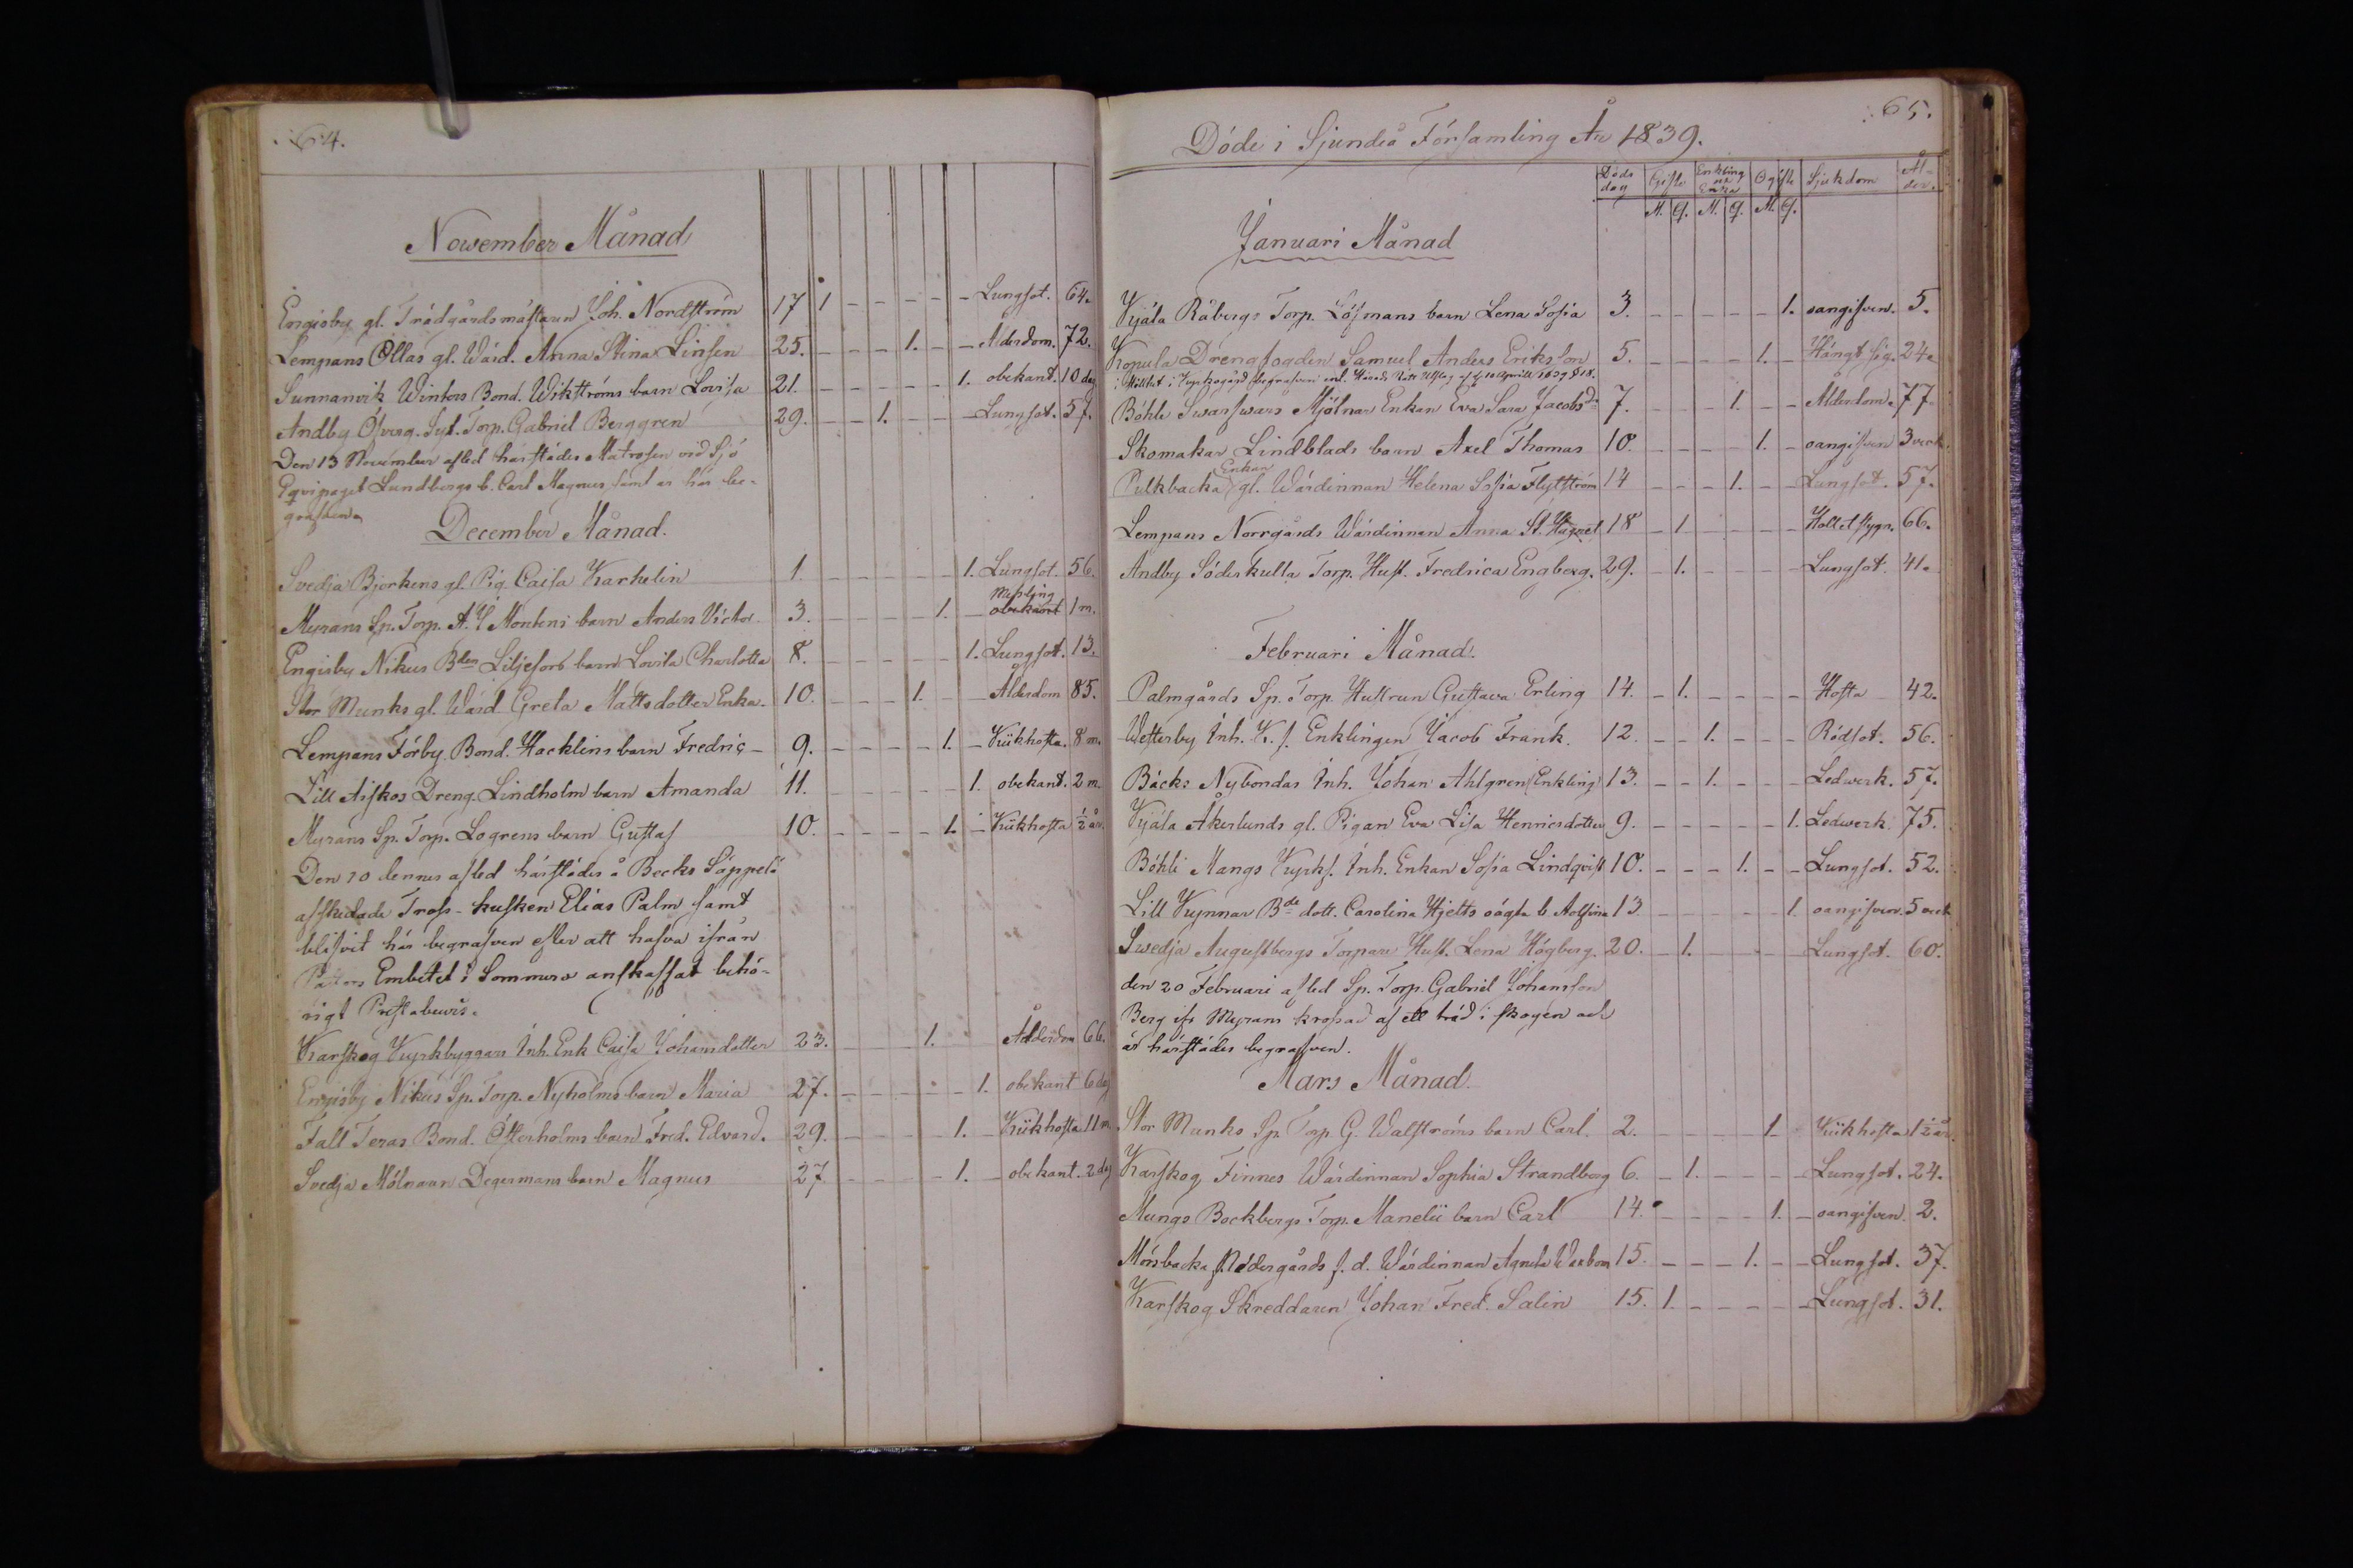 64.
Nowember Månad
Engisby gl. Trädgårdsmästaren Joh. Nordström 17 1 - - - - - Lungsot. 64.
Lempans Ollas gl. Wärd. Anna Stina Linsen 25. - - - 1. - - Ålderdom. 72.
Sunnanvik Winters Bond. Wikströms barn Lovisa 21. - - - - - 1. obekant. 10 dag
Andby Öfverg. Syt. Torp. Gabriel Berggren 29. - - 1. - - - Lungsot. 57.
Den 13 November afled härstädes Matrosen vid Sjö
Eqvipaget Lundbergs b. Carl Magnus, samt är här be-
grafven.
December Månad.
Svedja Bjorkens gl. Pig. Caisa Karhelin 1. - - - - - 1. Lungsot. 56.
Myrans Sp. Torp. A. J. Montens barn Anders Victor 3. - - - - 1. - Messling obekant 1 m.
Engisby Nikus Bden Liljefors barn Lovisa Charlotta 8. - - - - - 1. Lungsot. 13.
Stor Munks gl. Wärd. Greta Mattsdotter Enka. 10. - - - 1. - Ålderdom 85.
Lempans Förby Bond. Hacklins barn Fredric - 9. - - - - 1. - Kikhosta. 8 m.
Lill Aiskos Dreng. Lindholm barn Amanda 11. - - - - - 1. obekant. 2 m.
Myrans Sp. Torp. Logrens barn Gustaf 10. - - - - 1. - Kikhosta ½ år.
Den 20 dennes afled härstädes å Becks Säppelö
afskedade Tross-kusken Elias Palm samt
blifvit här begrafven efter att hafva ifrån
Pastors Embetet i Sommero anskaffat behö-
rigt Prestabewis.
Karskog Kyrkbyggars Inh. Enk Caisa Johansdotter 23. - - - 1. Ålderdom 66.
Engisby Nikus Sp. Torp. Nyholms barn Maria 27. - - - - - 1. obekant 6 dag
Fall Teras Bond. Österholms barn Fred. Edvard. 29. - - - - 1. - Kikhosta 11 m
Svedja Mölnaren Degermans barn Magnus 27. - - - - 1. - obekant. 2 dag
65.
Döde i Sjundeå Församling År 1839.
Döds dag Gifte Enkling ne Enka Ogifte Sjukdom Ål- der.
M. Q. M. Q. M. Q.
Januari Månad
Kyäla Råbergs Torp. Löfmans barn Lena Sofia 3. - - - - - 1. oangifven. 5.
Kopula Drengfogden Samuel Anders Erikson 5. - - - - 1. - Hängt sig. 24.
i stillhet i Kyrkogård begrafven enl. Härads Rätts Utslag af d. 10 Aprill 1839 § 18.
Böhle Swarfvars Mjölnar Enkan Eva Sara Jacobsd. 7. - - - 1. - - Ålderdom. 77.
Skomakar Lindblads barn Axel Thomas 10. - - - - 1. - oangifven 3 veck.
Pulkbacka Enkan gl. Wärdinnan Helena Sofia Flytström 14 - - - 1. - - Lungsot. 57.
Lempans Norrgårds Wärdinnan Anna St. Hagert 18 - 1 - - - - Håll et stygn. 66.
Andby Söderkulla Torp. Hust. Fredrica Engberg. 29. - 1. - - - - Lungsot. 41.
Februari Månad.
Palmgårds Sp. Torp. Hustrun Gustava Erling 14. - 1. - - - - Hosta 42.
Wetterby Inh. K. f. Enklingen Jacob Frank. 12. - - 1. - - - Rödsot. 56.
Bäcks Nybondas Inh. Johan Ahlgren Enkling 13. - - 1. - - - Ledwerk. 57.
Kyäla Åkerlunds gl. Pigan Eva Lisa Henricsdotter 9. - - - - - 1. Ledwerk. 75.
Böhle Mangs Kyrks. Inh. Enkan Sofia Lindqvist 10. - - - 1. - - Lungsot. 52.
Lill Kynnar Bde dott. Carolina Hjelts oägta b. Adolfina 13 - - - - - 1. oangifven. 5 veck
Swedja Augustbergs Torpare Hust. Lena Högberg. 20. - 1. - - - - Lungsot. 60.
den 20 Februari afled Sp. Torp. Gabriel Johansson
Berg ifr. Myrans krossad af ett träd i skogen och
är härstädes begrafven.
Mars Månad
Stor Munks Sp. Torp. G. Walströms barn Carl. 2. - - - - 1 Kikhosta 1½ år.
Karskog Finnes Wärdinnan Sophia Strandberg 6. - 1. - - - - Lungsot. 24.
Mungs Bockbergs Torp. Manelii barn Carl 14. - - - - 1. - oangifven. 2.
Mörsbacka Nedergårds f. d. Wärdinnan Agneta Waxbom 15. - - - 1. - - Lungsot. 37.
Karskog Skreddaren Johan Fred. Salin 15. 1. - - - - - Lungsot. 31.